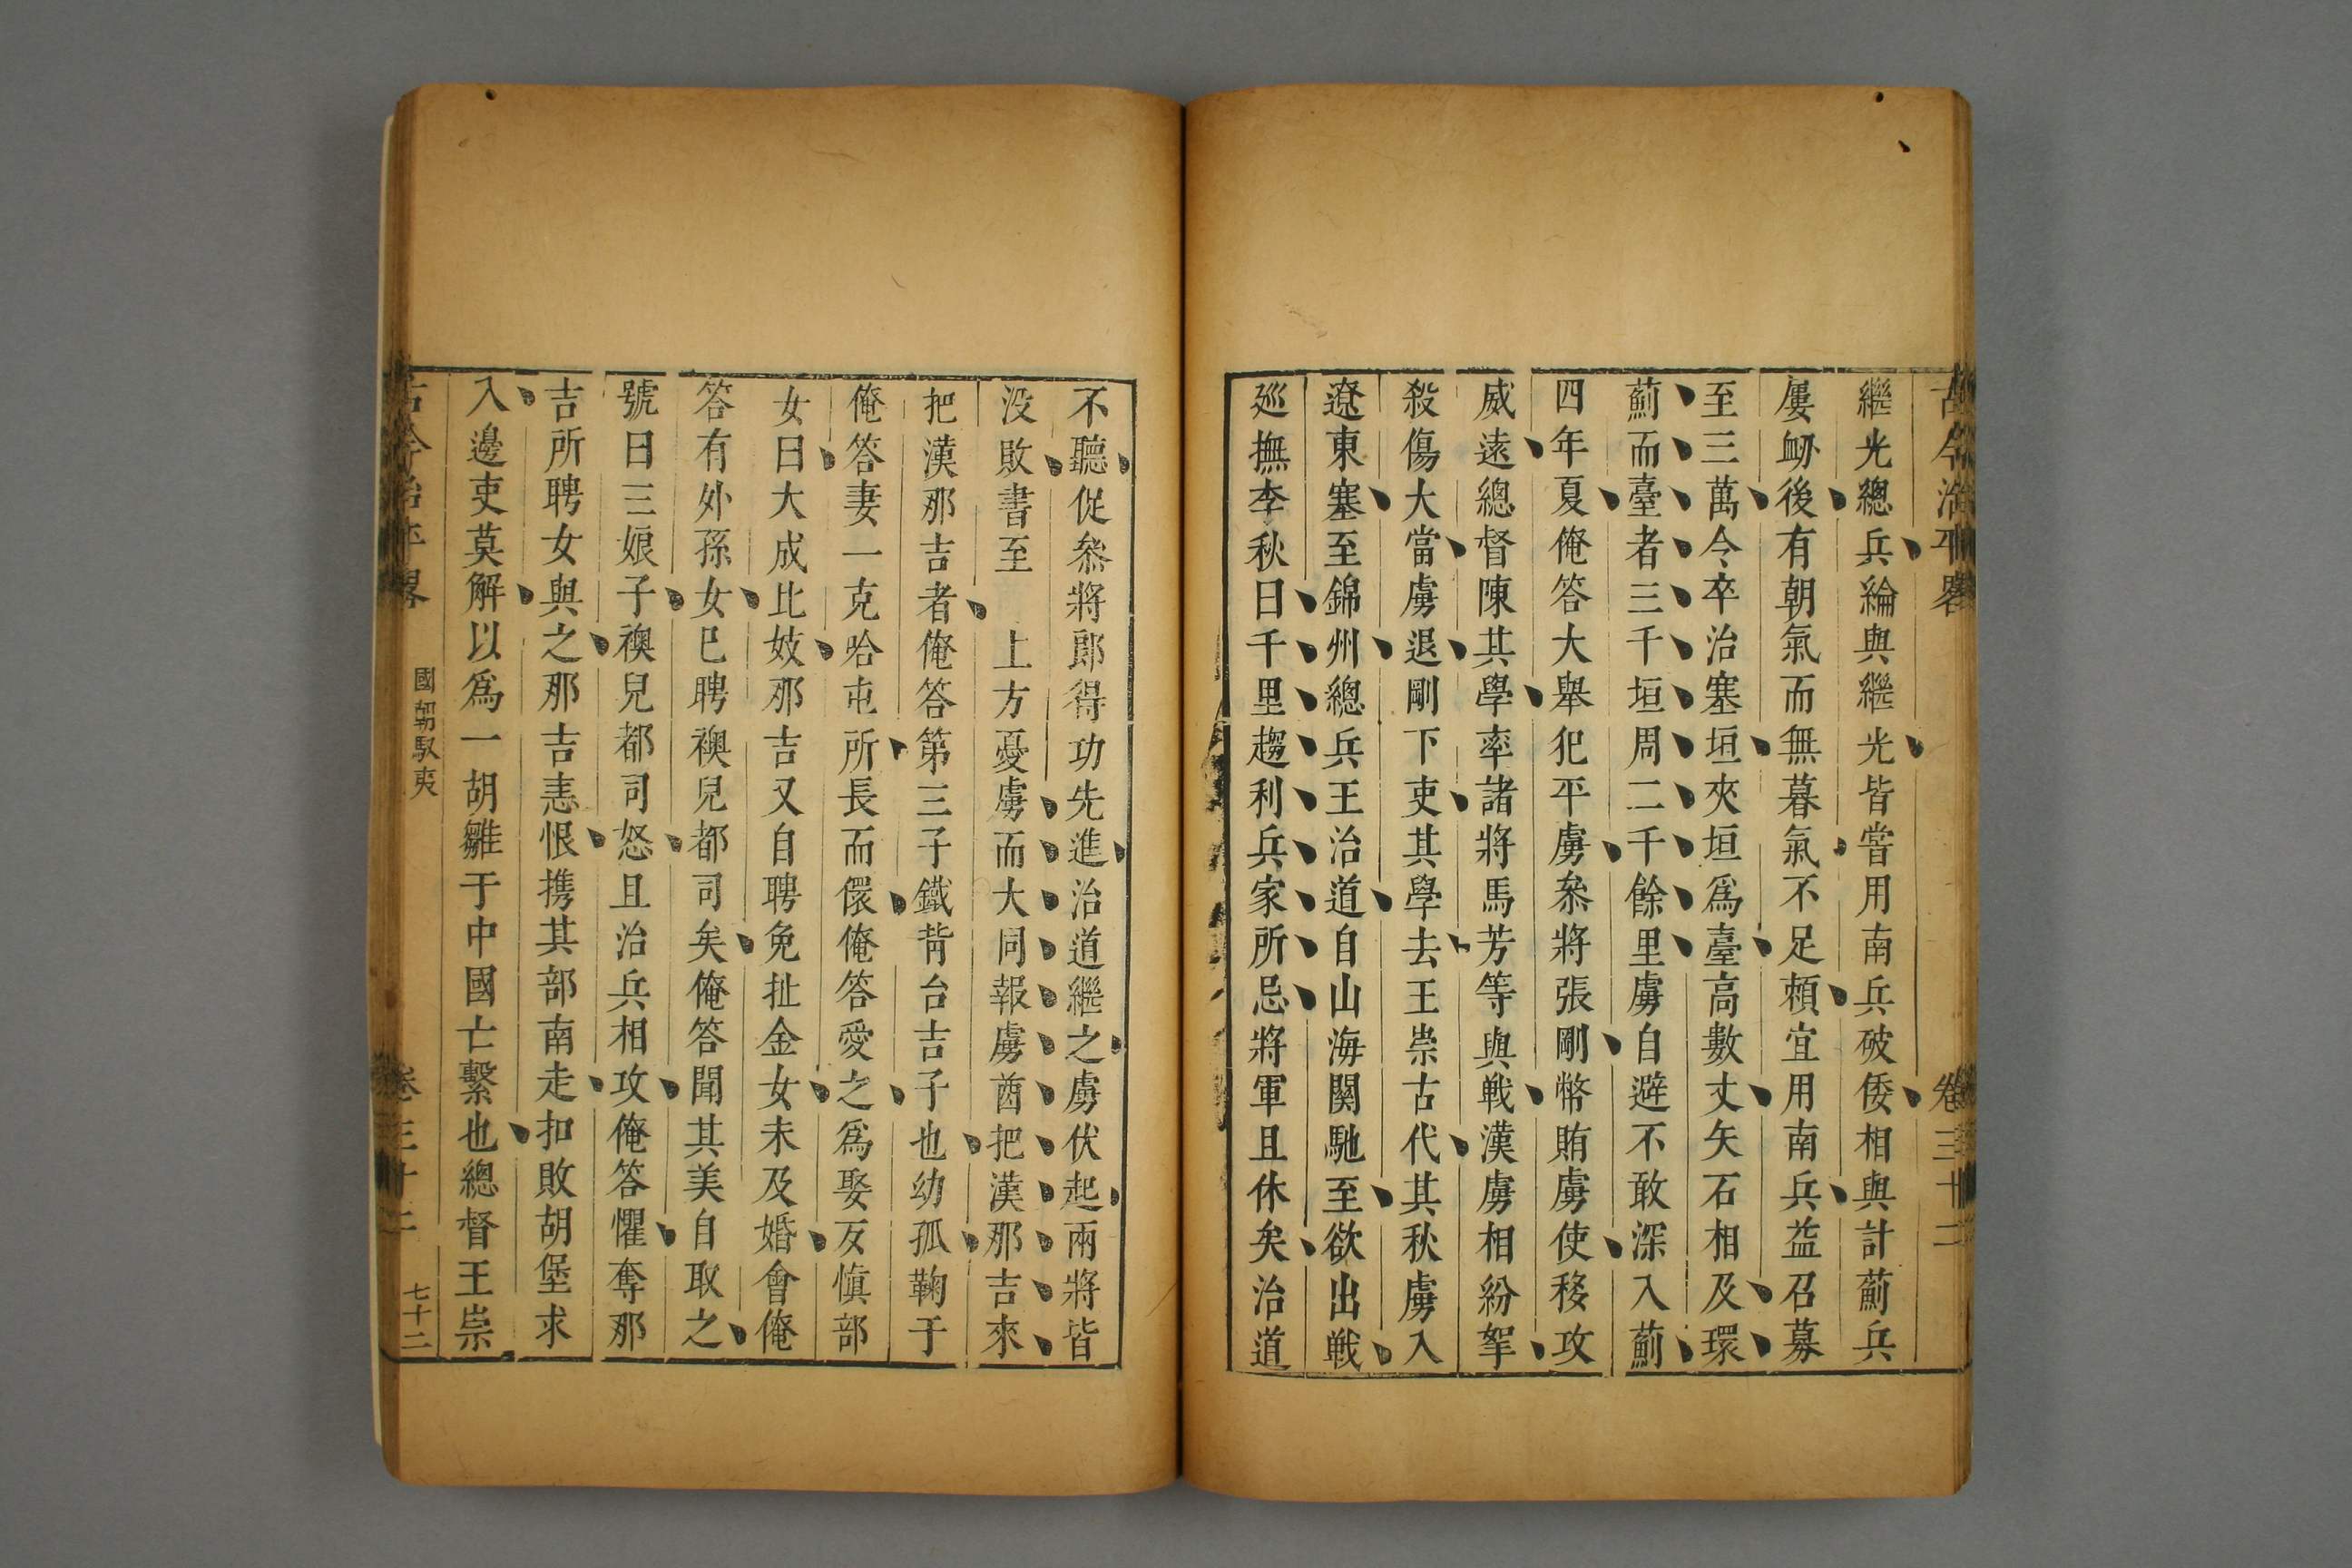 古今治平畧 卷三十二
繼光總兵綸與繼光皆嘗用南兵破倭相與計薊兵
屢衂後有朝氣而無暮氣不足頼宜用南兵益召募
至三萬今卒治塞垣夾垣爲臺高數丈矢石相及環
薊而臺者三千垣周二千餘里虜自避不敢深入薊
四年夏俺答大舉犯平虜叅將張剛幣賄虜使移攻
威遠總督陳其學率諸將馬芳等與戰漢虜相紛挐
殺傷大當虜退剛下吏其學去王崇古代其秋虜入
遼東塞至錦州總兵王治道自山海關馳至欲出戰
廵撫李秋曰千里趨利兵家所忌將軍且休矣治道
不聽促叅將郎得功先進治道繼之虜伏起兩將皆
没敗書至 上方憂虜而大同報虜酋把漢那吉來
把漢那吉者俺答第三子鐵背台吉子也幼孤鞠于
俺答妻一克哈屯所長而儇俺答愛之爲娶反慎部
女曰大成比妓那吉又自聘免扯金女未及婚會俺
答有外孫女巳聘襖兒都司矣俺答聞其美自取之
號曰三娘子襖兒都司怒且治兵相攻俺答懼奪那
吉所聘女與之那吉恚恨携其部南走扣敗胡堡求
入邊吏莫解以爲一胡雛于中國亡繫也總督王崇
古今治平畧 國朝馭夷 卷三十二 七十二